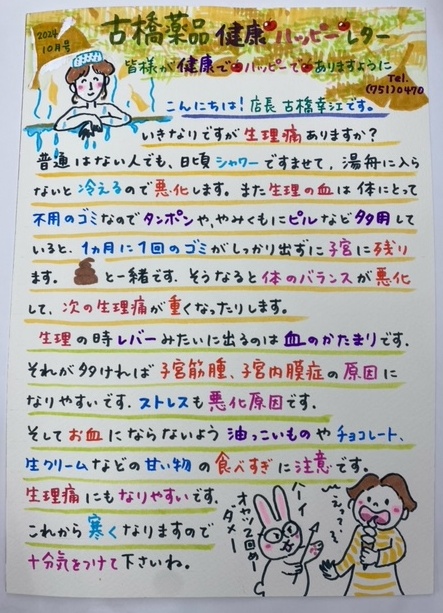 2024
10月号
古橋薬品 健康ハッピーレター
皆様が健康でハッピーでありますように
Tel.
(751)0470
こんにちは！店長 古橋幸江です。
いきなりですが生理痛ありますか？
普通はない人でも、日頃シャワーですませて、湯舟に入ら
ないと冷えるので悪化します。また生理の血は体にとって
不用のゴミなのでタンポンや、やみくもにピルなど多用して
いると、1ヵ月に1回のゴミがしっかり出ずに子宮に残り
ます。💩と一緒です。そうなると体のバランスが悪化
して、次の生理痛が重くなったりします。
生理の時レバーみたいに出るのは血のかたまりです。
それが多ければ子宮筋腫、子宮内膜症の原因に
なりやすいです。ストレスも悪化原因です。
そしてお血にならないよう油っこいものやチョコレート、
生クリームなどの甘い物の食べすぎに注意です。
生理痛にもなりやすいです。
これから寒くなりますので
十分気をつけて下さいね。
オヤツ2回めー
ダメー